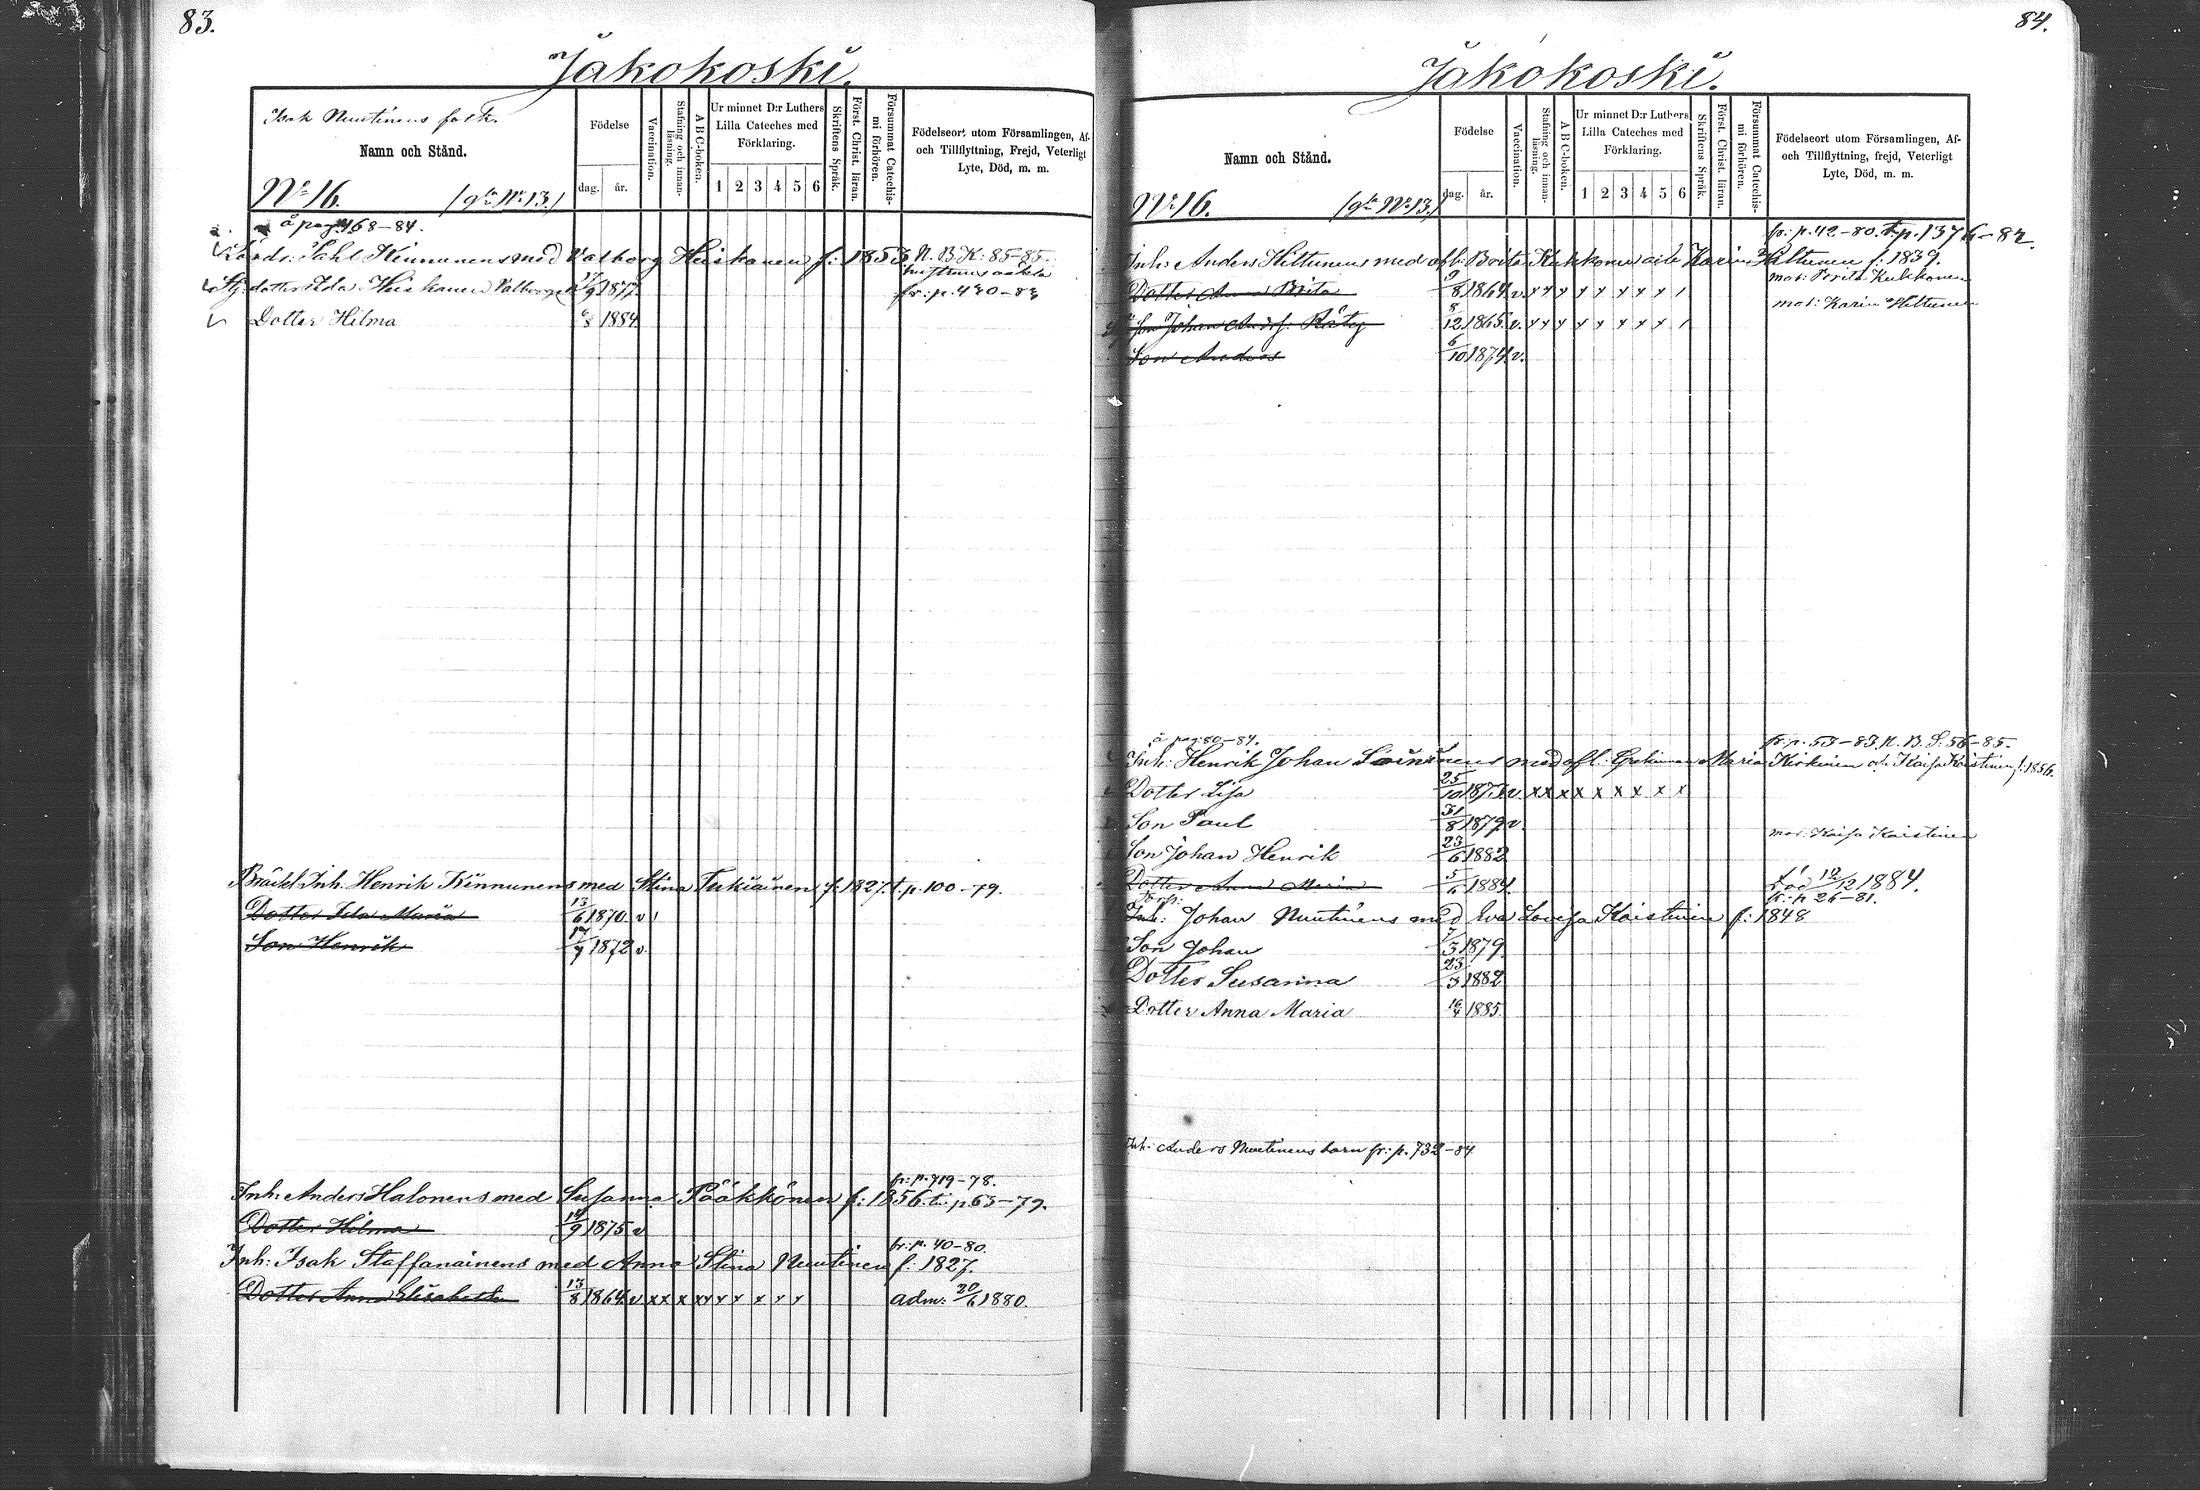 83.
Jakokoski.
Isak Nuutinens folk.
Namn och Stånd.
Nº 16. /gla Nº 13./
Födelse
dag. år.
Vaccination.
Stafning och innanläsning.
A B C-boken.
Ur minnet D:r Luthers Lilla Cateches med Förklaring.
1 2 3 4 5 6
Skriftens Språk.
Först. Christ. läran.
Försummat Catechismi förhören.
Födelseort utom Församlingen, Af- och Tillflyttning, Frejd, Veterligt Lyte, Död, m. m.
å pag. 468-84.
Kinnunens med Valborg Heiskanen f: 1853 N. B. K. 85-85.
dotter Ida Heiskanen Valborgs 17/9 1877 fr: p. 430-83
Dotter Hilma 6/8 1884
Inh. Henrik Kinnunens med Stina Tukiainen f: 1827. t. p. 100-79.
Dotter Ida Maria 13/6 1870 v
Son Henrik 17/7 1872 v.
fr: p. 719-78.
Inh: Anders Halonens med Susanna Pääkkönen f: 1856. t: p 63-79.
Dotter Hilma 14/9 1875 v
fr: p. 40-80.
Inh: Isak Staffanainens med Anna Stina Nuutinen f: 1827.
Dotter Anna Elisabeth 13/8 1864 v x x x x x x x x x adm: 20/6 1880.
84.
Jakokoski.
Namn och Stånd.
Nº 16. /gla Nº 13./
Födelse
dag. år.
Vaccination.
Stafning och innanläsning.
A B C-boken.
Ur minnet D:r Luthers Lilla Cateches med Förklaring.
1 2 3 4 5 6
Skriftens Språk.
Först. Christ. läran.
Försummat Catechismi förhören.
Födelseort utom Församlingen, Af- och Tillflyttning, frejd, Veterligt Lyte, Död, m. m.
fr: p. 42-80. t p. 1376-82.
Inh: Anders Hiltunens med afl: Brita Kukkonen och Karin Hiltunen f: 1839.
Dotter Anna Brita 9/8 1864 v x x x x x x x x / mod: Brita Kukkonen
Son Johan 8/12 1865 v. x x x x x x x x / mod: Karin Hiltunen
Son Anders 6/10 1874 v.
å pag: 80-84. fr: p. 53-83. N. B. S. 56-85.
Inh: Henrik Johan med afl. Maria och Kaisa Kaistinen f: 1856.
Dotter Lisa 25/10 1873 v. x x x x x x x x x
Son Paul 31/8 1879 v.
Son Johan Henrik 23/6 1882 mod: Kaisa Kaistinen
Dotter Anna Maria 5/6 1884 död 12/12 1884.
fr: p 26-81.
Inh: Johan Nuutinens med Eva Lovisa Kaistinen f: 1848
Son Johan 7/5 1879
Dotter Susanna 23/3 1882
Dotter Anna Maria 16/4 1885
Inh: Anders Nuutinens barn fr: p. 732-84